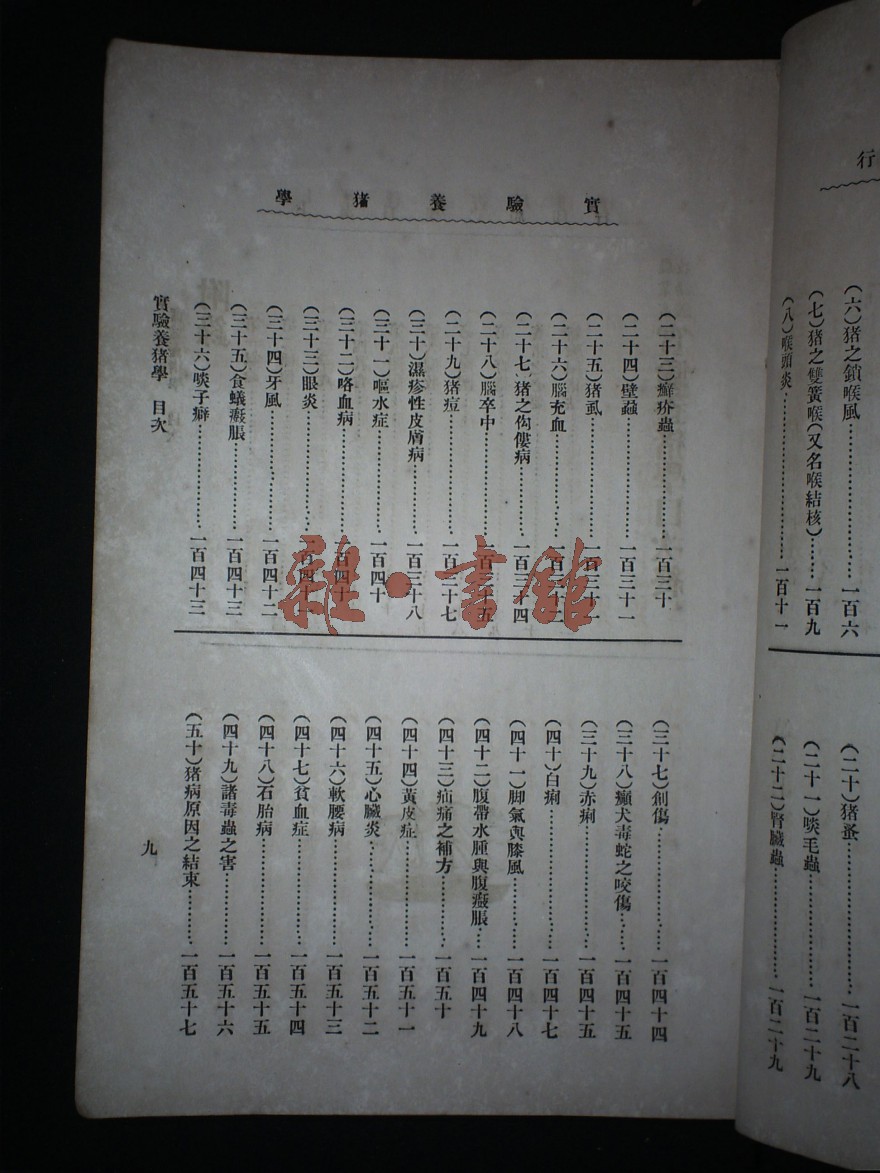 行
(六)猪之鎖喉風……一百六
(七)猪之雙簧喉(又名喉結核)……一百九
(八)喉頭炎……一百十一
(二十)猪蚤……一百二十八
(二十一)啖毛蟲……一百二十九
(二十二)腎臟蟲……一百二十九
實驗養猪學
(二十三)癬疥蟲……一百三十
(二十四)壁蝨……一百三十一
(二十五)猪虱……一百三十一
(二十六)腦充血……一百三十二
(二十七)猪之佝僂病……一百三十四
(二十八)腦卒中……一百三十五
(二十九)猪痘……一百三十七
(三十)濕疹性皮膚病……一百三十八
(三十一)嘔水症……一百四十
(三十二)咯血病……一百四十
(三十三)眼炎……一百四十一
(三十四)牙風……一百四十二
(三十五)食蟻癥脹……一百四十三
(三十六)啖子癖……一百四十三
(三十七)創傷……一百四十四
(三十八)癲犬毒蛇之咬傷……一百四十五
(三十九)赤痢……一百四十五
(四十)白痢……一百四十七
(四十一)脚氣與膝風……一百四十八
(四十二)腹帶水腫與腹癥脹……一百四十九
(四十三)疝痛之補方……一百五十
(四十四)黃皮症……一百五十一
(四十五)心臟炎……一百五十二
(四十六)軟腰病……一百五十三
(四十七)貧血症……一百五十四
(四十八)石胎病……一百五十五
(四十九)諸毒蟲之害……一百五十六
(五十)猪病原因之結束……一百五十七
實驗養猪學 目次
九
雜·書館